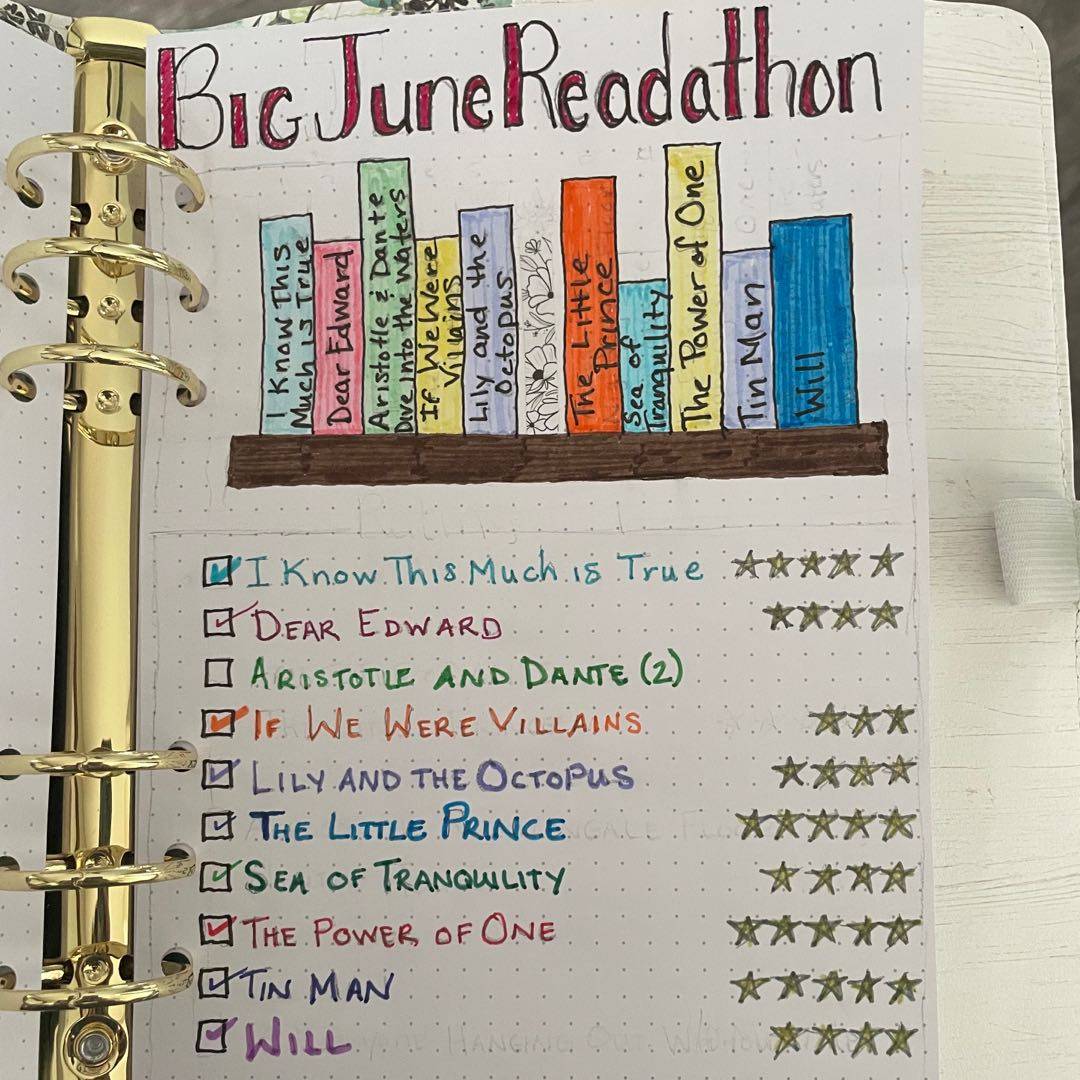 Big June Readathon
I Know This
Much is True
Dear Edward
Aristotle & Dante
Dive into the Waters
If We Were
Villains
Lily and the
Octopus
The Little
Prince
Sea of
Tranquility
The Power of One
Tin Man
Will
I Know This Much is True
DEAR EDWARD
ARISTOTLE AND DANTE (2)
IF WE WERE VILLAINS
LILY AND THE OCTOPUS
THE LITTLE PRINCE
SEA OF TRANQUILITY
THE POWER OF ONE
TIN MAN
WILL